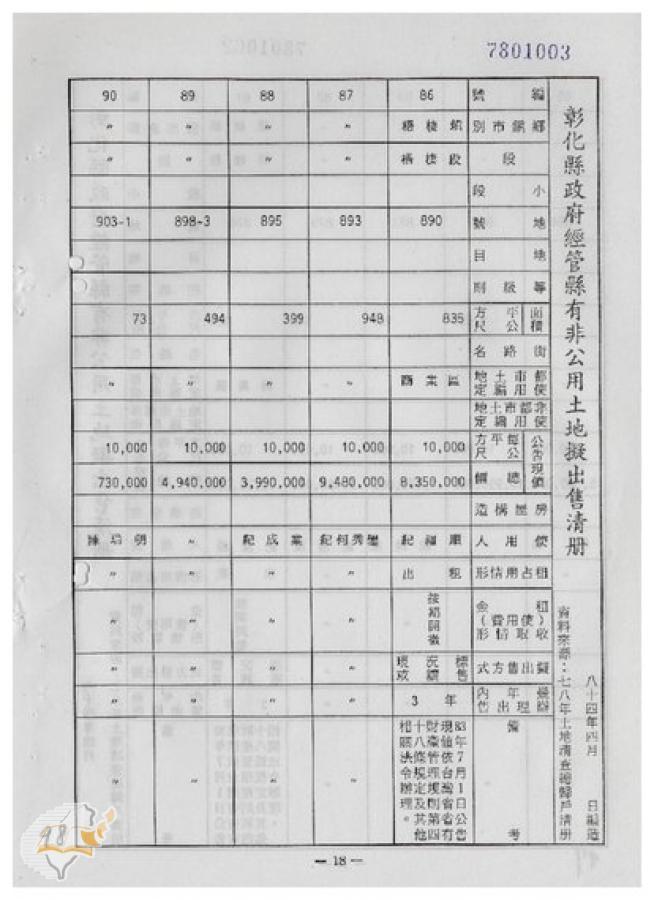 7801003
彰化縣政府經管縣有非公用土地擬出售清冊
八十四年四月 日編造
資料來源：七八年土地清查總歸戶清冊
編號 86 87 88 89 90
鄉鎮市別 梧棲鎮 〃 〃 〃 〃
段 梧棲段 〃 〃 〃 〃
小段
地號 890 893 895 898-3 903-1
地目
等級則
面積 平方公尺 835 948 399 494 73
街路名
都市土地使用編定 商業區 〃 〃 〃 〃
非都市土地使用編定
公告現值 每平方公尺 10,000 10,000 10,000 10,000 10,000
總價 8,350,000 9,480,000 3,990,000 4,940,000 730,000
房屋構造
使用人 紀 紀何秀 紀成業 〃 陳 明
租占用情形 出租 〃 〃 〃 〃
租金（使用費）收取情形 按期開徵 〃 〃 〃 〃
擬出售方式 現況標售或讓售 〃 〃 〃 〃
幾年內辦理出售 3年 〃 〃 〃 〃
備考 83年7月1日公告現值依台灣省省有財產管理規則第四十八條規定及其他相關法令辦理。 〃 〃 〃 〃
98
— 18 —